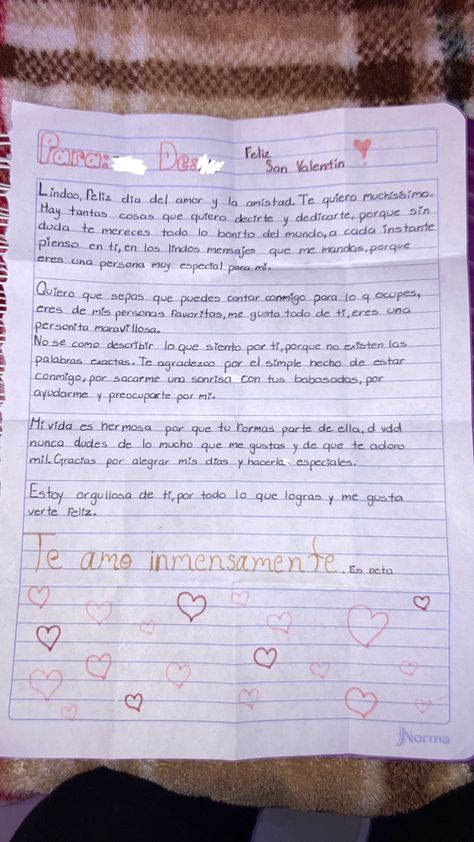 Para: De: Feliz
San Valentin
Lindoo, Feliz dia del amor y la amistad. Te quiero muchisisimo.
Hay tantas cosas que quiero decirte y dedicarte, porque sin
duda te mereces todo lo bonito del mundo, a cada instante
pienso en ti, en los lindos mensajes que me mandas, porque
eres una persona muy especial para mi.
Quiero que sepas que puedes contar conmigo para lo q ocupes,
eres de mis personas favoritas, me gusta todo de ti, eres una
personita maravillosa.
No se como describir lo que siento por ti, porque no existen las
palabras exactas. Te agradezco por el simple hecho de estar
conmigo, por sacarme una sonrisa con tus babosadas, por
ayudarme y preocuparte por mi.
Mi vida es hermosa por que tu formas parte de ella, d vdd
nunca dudes de lo mucho que me gustas y de que te adoro
mil. Gracias por alegrar mis dias y hacerla especiales.
Estoy orgullosa de ti, por todo lo que logras y me gusta
verte feliz.
Te amo inmensamente. Es neta
Norma